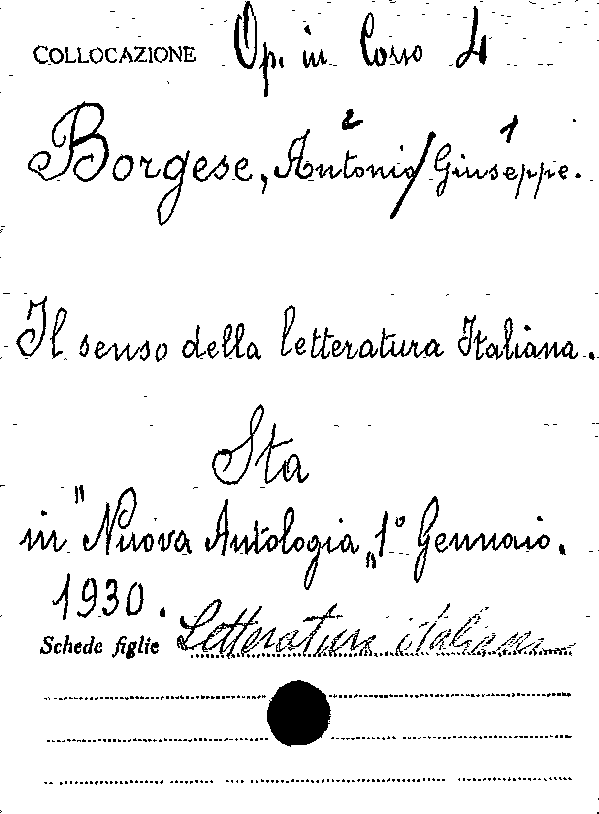 COLLOCAZIONE Op. in Corso 4
2 1
Borgese, Antonio/Giuseppe.
Il senso della letteratura Italiana.
Sta
in "Nuova Antologia„ 1° Gennaio.
1930.
Schede figlie Letteratura italiana